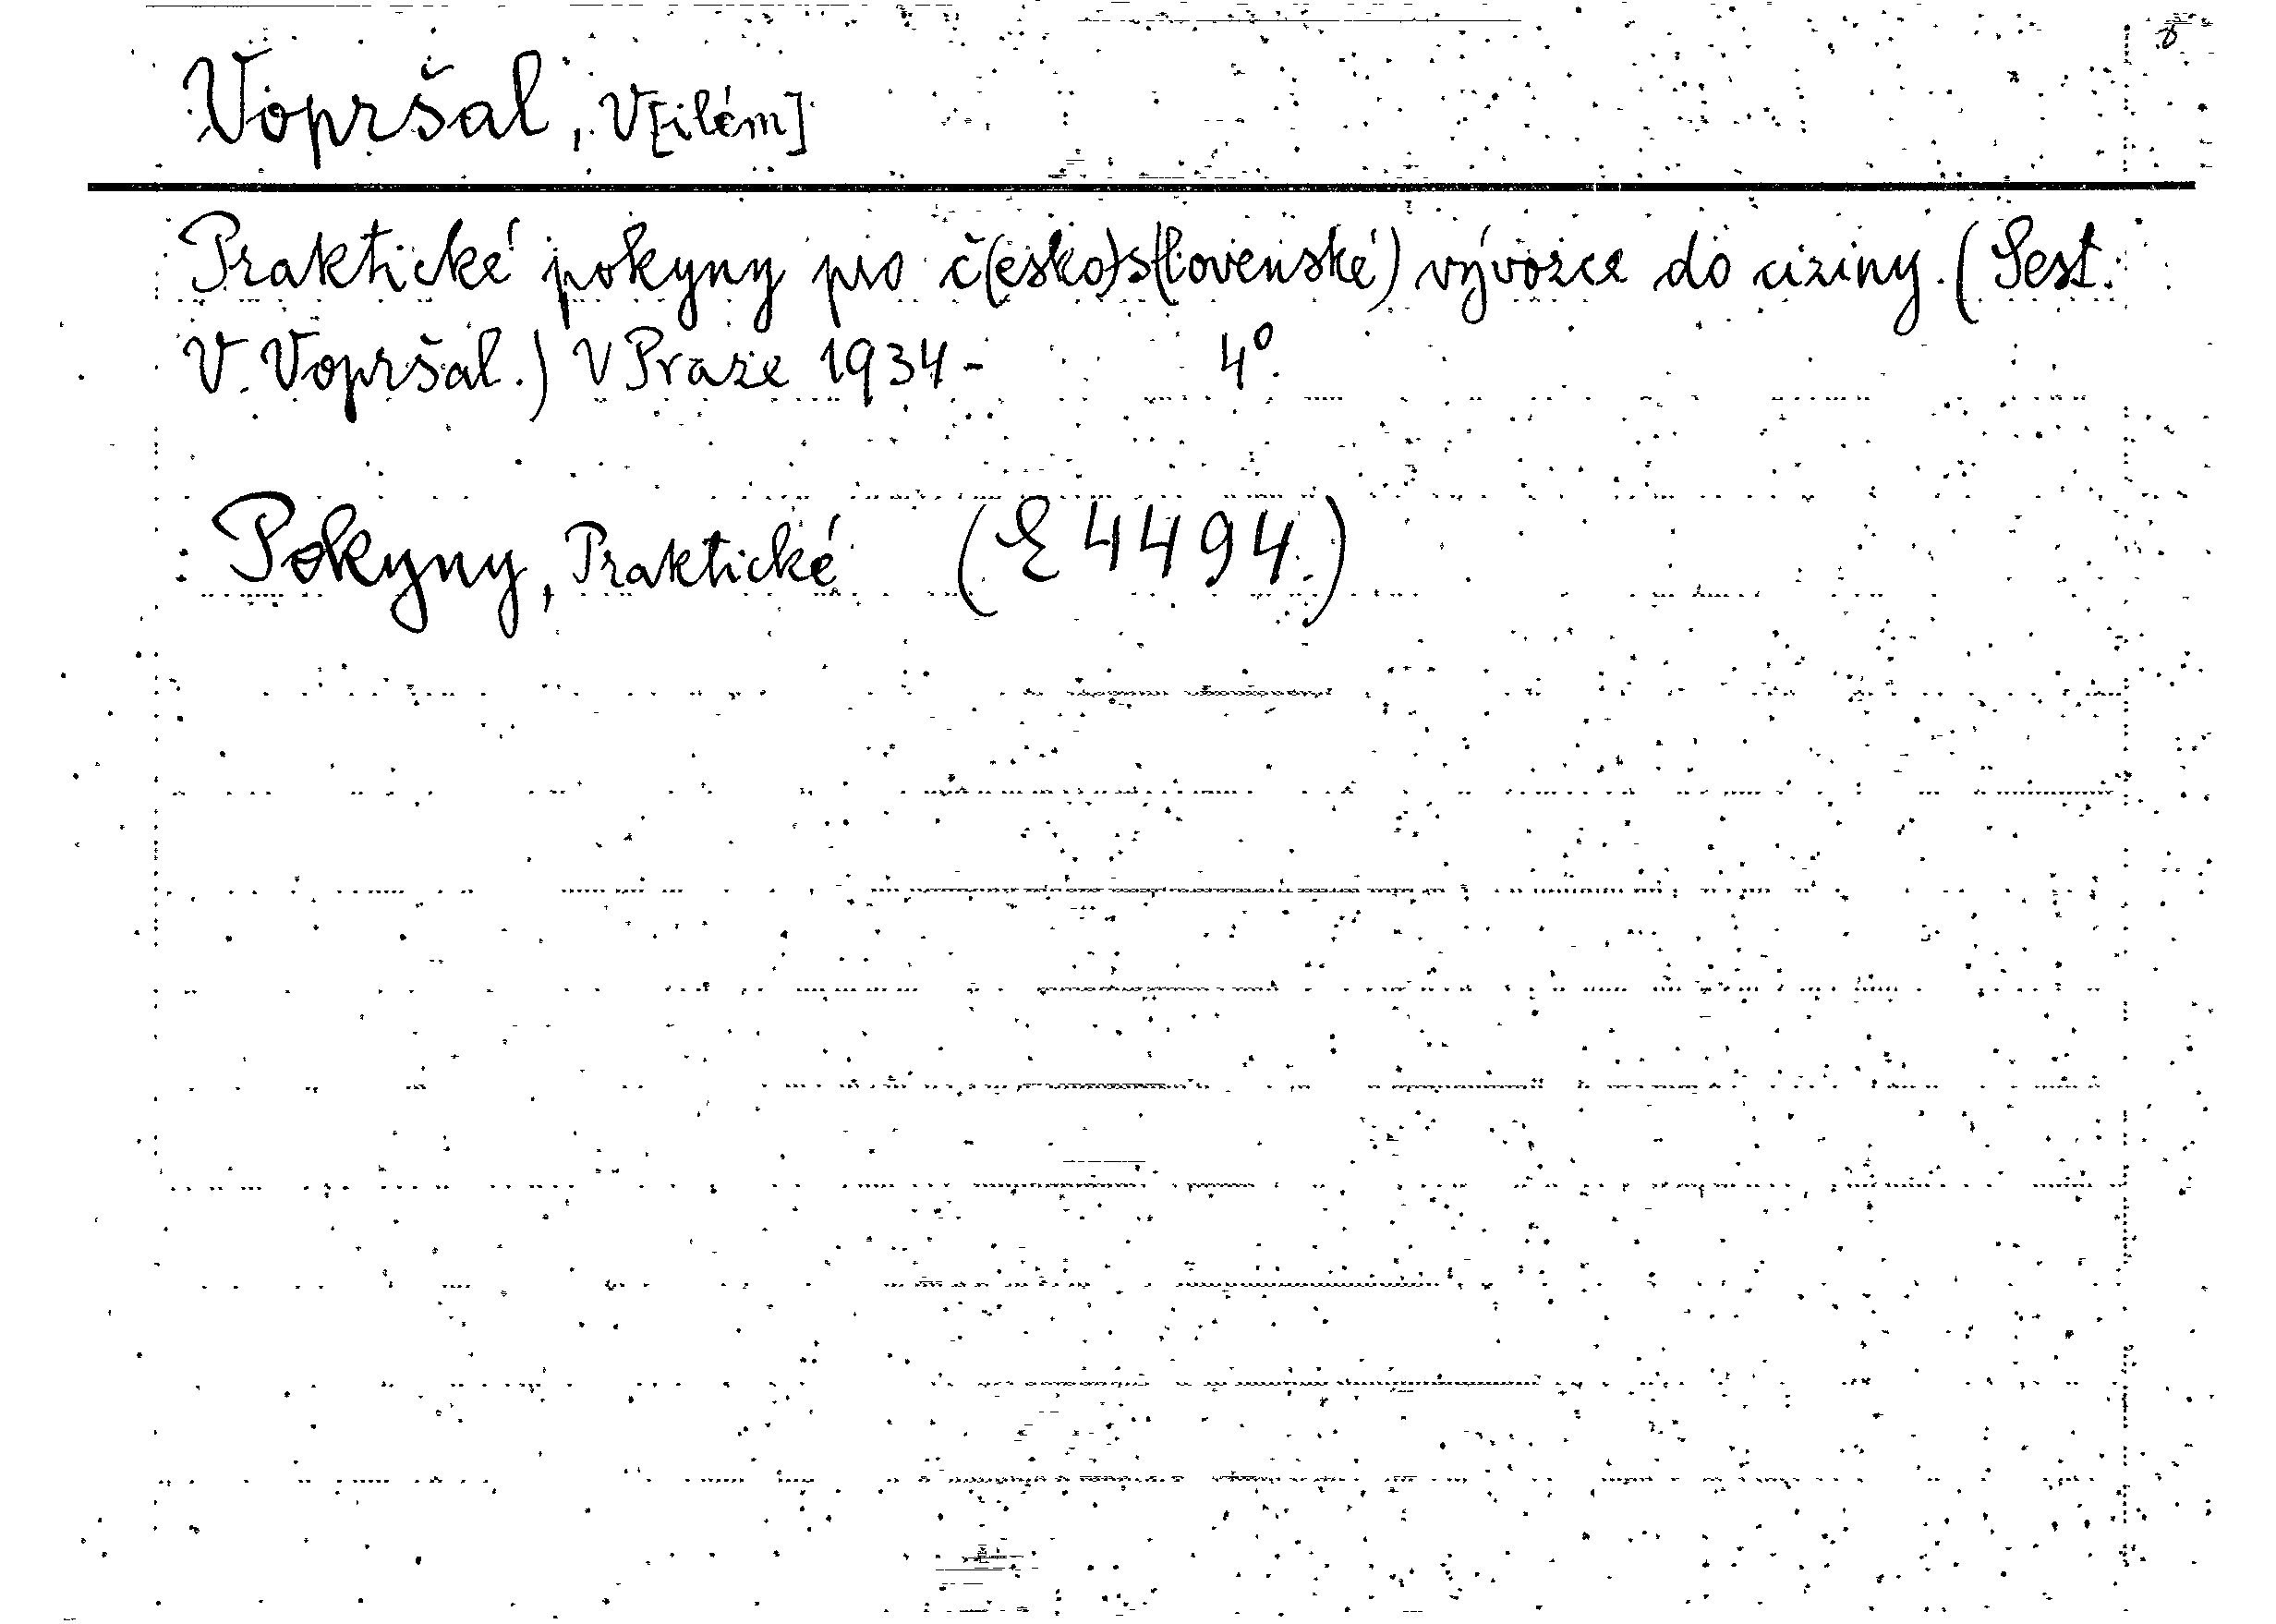 Vopršal, V[ilém]
Praktické pokyny pro č(esko)s(lovenské) vývozce do ciziny. (Sest.
V. Vopršal.) V Praze 1934- 4°.
Pokyny, Praktické (E 4494.)